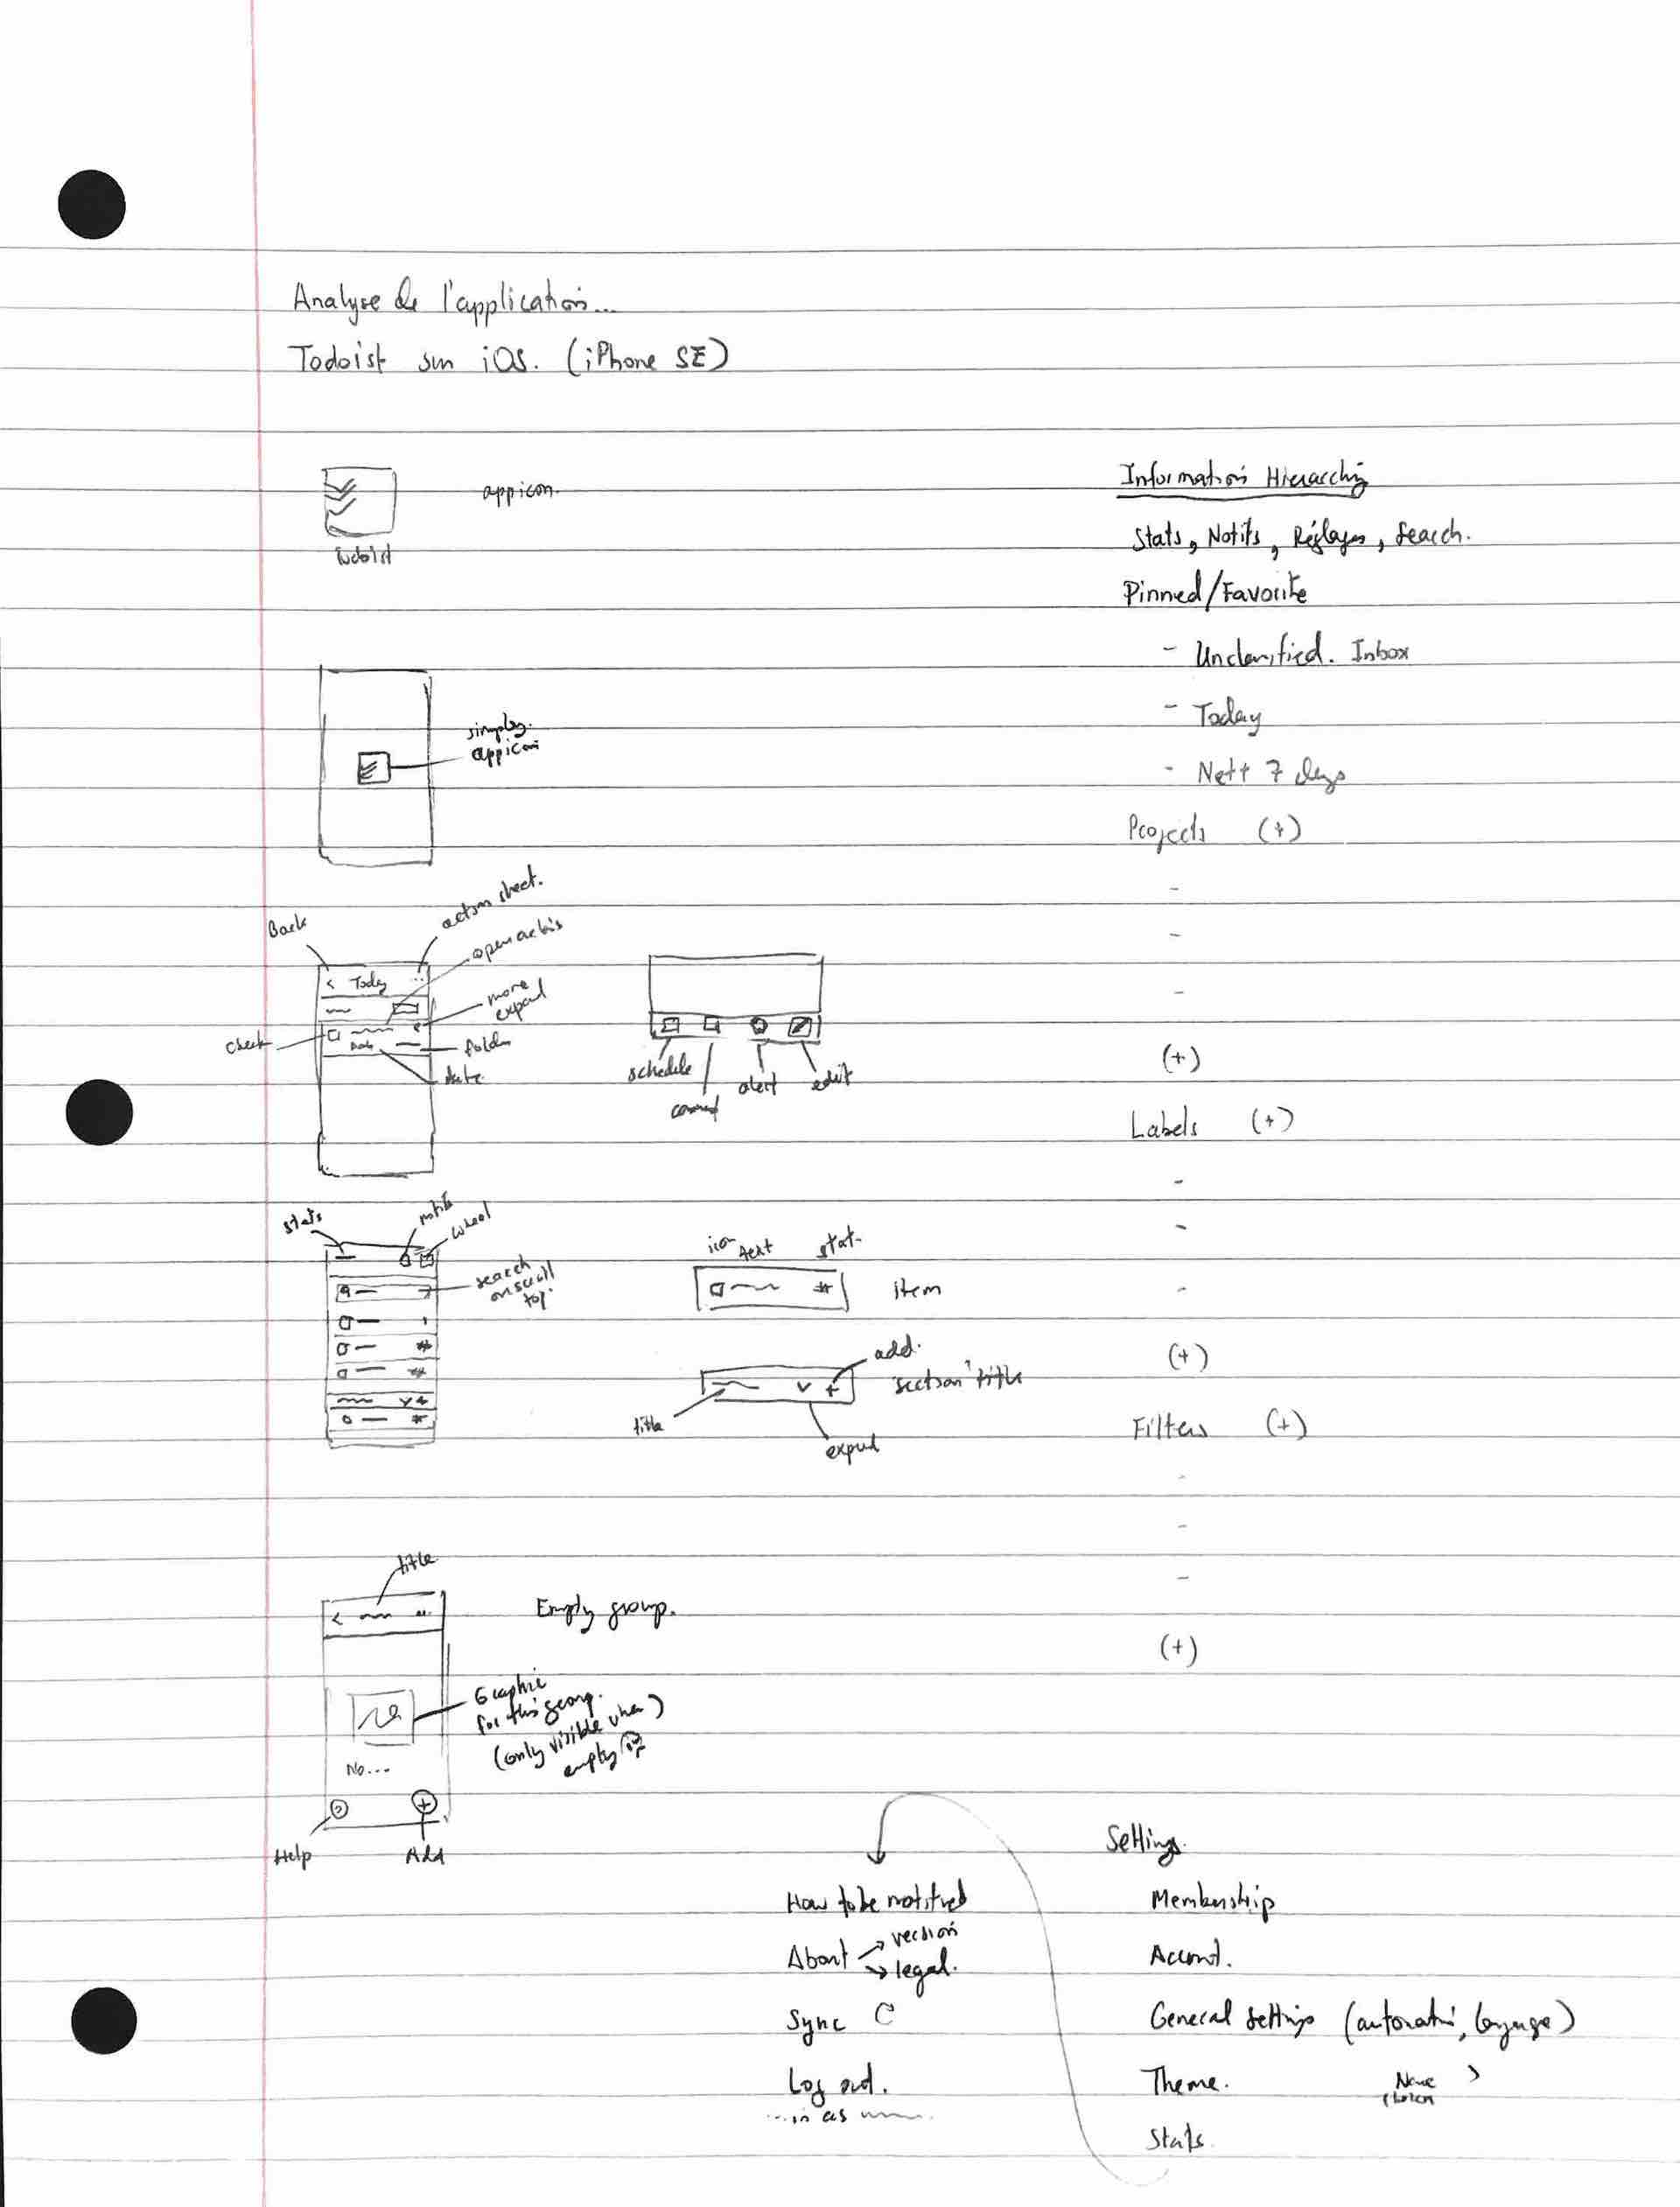 Analyse de l'application...
Todoist sur iOS. (iPhone SE)
appicon.
todoist
simples.
appicon
Back
action sheet.
open actis
< Today ..
more
expand
check
folder
date
schedule
alert
edit
stats
notifs
wheel
search
on scroll
top.
icon text stat.
item
add.
"section" title
title
expand
title
Empty group.
Graphic
for this group.
(only visible when)
empty
No...
Help
Add
Information Hierarchy
Stats, Notifs, Réglages, Search.
Pinned/Favorite
- Unclassified. Inbox
- Today
- Next 7 days
Projects (+)
-
-
-
(+)
Labels (+)
-
-
-
(+)
Filters (+)
-
-
-
(+)
Settings.
Membership
Account.
General settings (automati, language)
Theme.
Name
Stats.
How to be notified
About → version
→ legal.
Sync
Log out.
... in as